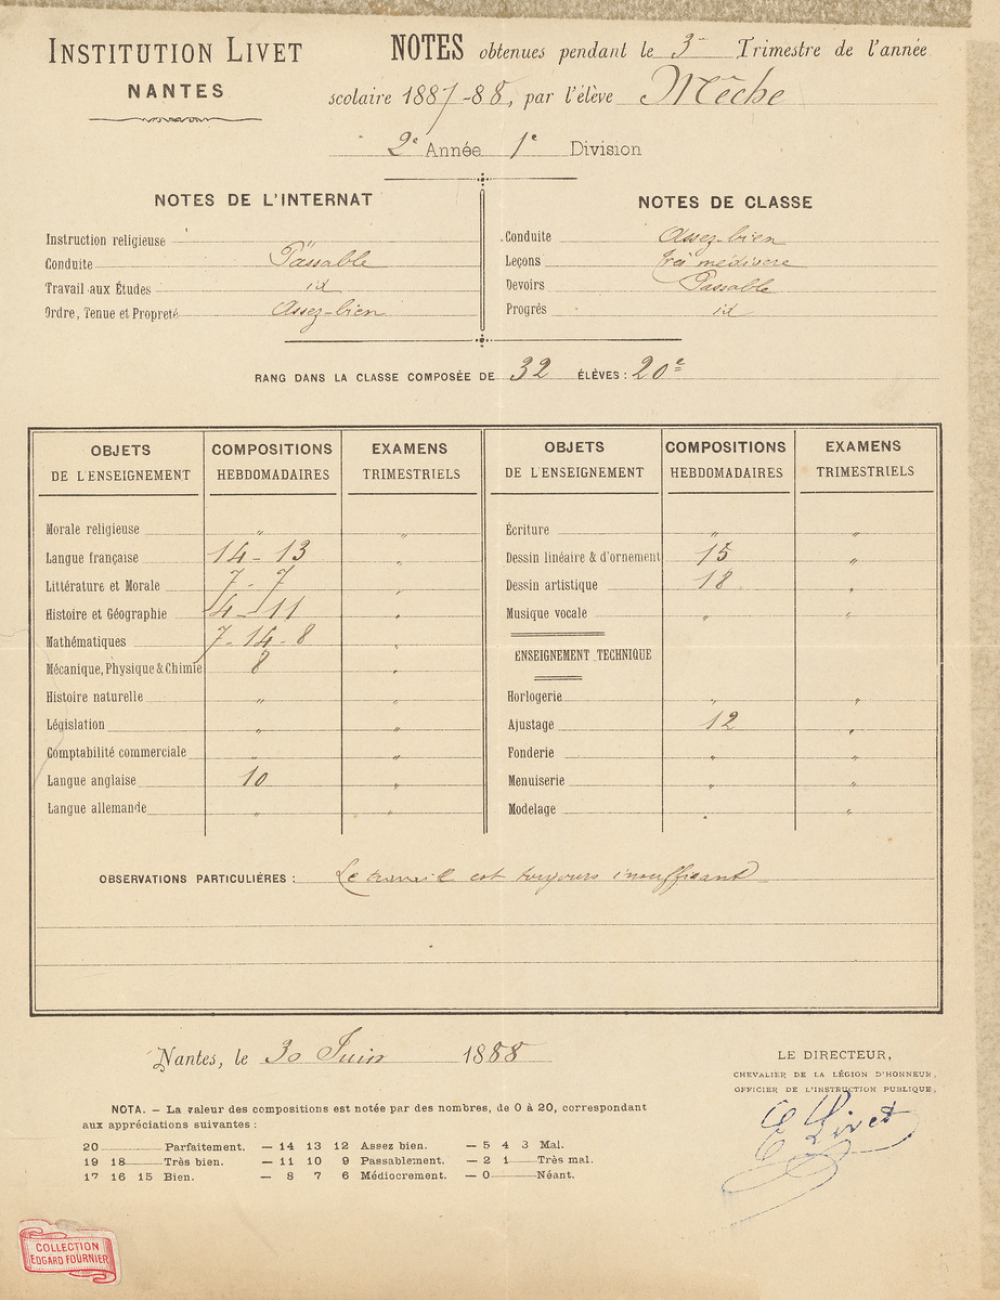 INSTITUTION LIVET
NANTES
NOTES obtenues pendant le 3e Trimestre de l'année
scolaire 1887-88, par l'élève Mêche
2e Année 1e Division
NOTES DE L'INTERNAT
Instruction religieuse "
Conduite Passable
Travail aux Études id
Ordre, Tenue et Propreté Assez-bien
NOTES DE CLASSE
Conduite Assez-bien
Leçons très médiocre
Devoirs Passable
Progrès id
RANG DANS LA CLASSE COMPOSÉE DE 32 ÉLÈVES : 20e
OBJETS DE L'ENSEIGNEMENT
COMPOSITIONS HEBDOMADAIRES
EXAMENS TRIMESTRIELS
Morale religieuse " "
Langue française 14 - 13 "
Littérature et Morale 7 - 7 "
Histoire et Géographie 4 - 11 "
Mathématiques 7 - 14 - 8 "
Mécanique, Physique & Chimie 8 "
Histoire naturelle " "
Législation " "
Comptabilité commerciale " "
Langue anglaise 10 "
Langue allemande " "
OBJETS DE L'ENSEIGNEMENT
COMPOSITIONS HEBDOMADAIRES
EXAMENS TRIMESTRIELS
Écriture " "
Dessin linéaire & d'ornement 15 "
Dessin artistique 18 "
Musique vocale " "
ENSEIGNEMENT TECHNIQUE
Horlogerie " "
Ajustage 12 "
Fonderie " "
Menuiserie " "
Modelage " "
OBSERVATIONS PARTICULIÈRES : Le travail est toujours insuffisant
Nantes, le 30 Juin 1888
LE DIRECTEUR,
CHEVALIER DE LA LÉGION D'HONNEUR,
OFFICIER DE L'INSTRUCTION PUBLIQUE,
E Livet
NOTA. — La valeur des compositions est notée par des nombres, de 0 à 20, correspondant
aux appréciations suivantes :
20 Parfaitement. — 14 13 12 Assez bien. — 5 4 3 Mal.
19 18 Très bien. — 11 10 9 Passablement. — 2 1 Très mal.
17 16 15 Bien. — 8 7 6 Médiocrement. — 0 Néant.
COLLECTION
EDGARD FOURNIER